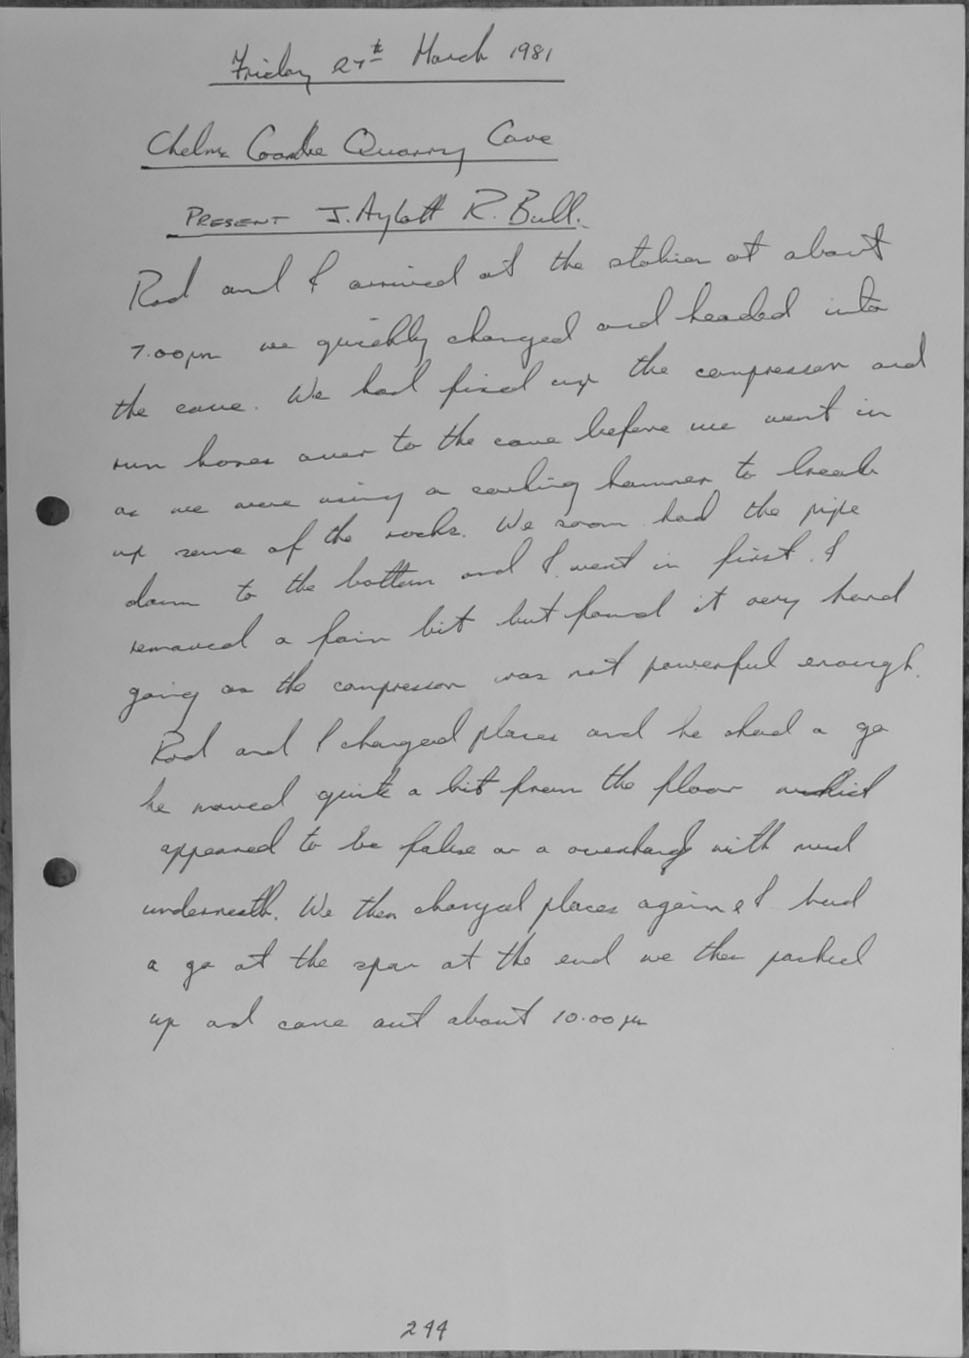 Friday 27th March 1981
Chelms Coombe Quarry Cave
PRESENT J. Aylett R. Bull.
Rod and I arrived at the station at about
7.00pm we quickly changed and headed into
the cave. We had fired up the compressor and
run hoses over to the cave before we went in
as we were using a caulking hammer to break
up some of the rocks. We soon had the pipe
down to the bottom and I went in first. I
removed a fair bit but found it very hard
going as the compressor was not powerful enough.
Rod and I changed places and he had a go
he moved quite a bit from the floor which
appeared to be false or a overhang with mud
underneath. We then changed places again & I had
a go at the spar at the end we then packed
up and came out about 10.00pm
244